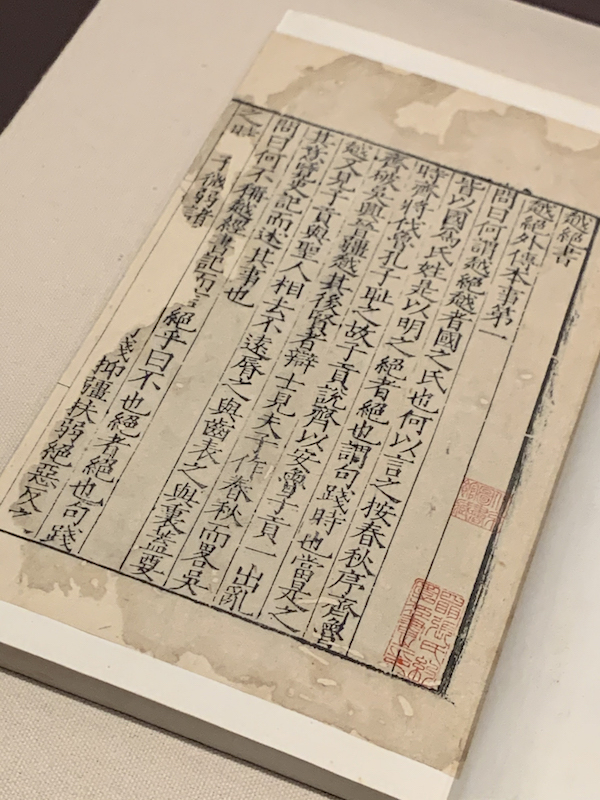 越絕書
越絕外傳本事第一
問曰何謂越絕越者國之氏也何以言之按春秋序齊魯
皆以國爲氏姓是以明之絕者絕也謂句踐時也當是之
時齊將伐魯孔子恥之故子貢說齊以安魯子貢一出亂
齊破吳興晉疆越其後賢者辯士見夫子作春秋而畧吳
越又見子貢與聖人相去不遠脣之與齒表之與裏蓋要
其意覽史記而述其事也
問曰何不稱越經書記而絕乎曰不也絕者絕也句踐
之時子微弱者踐抑疆扶弱絕惡反之